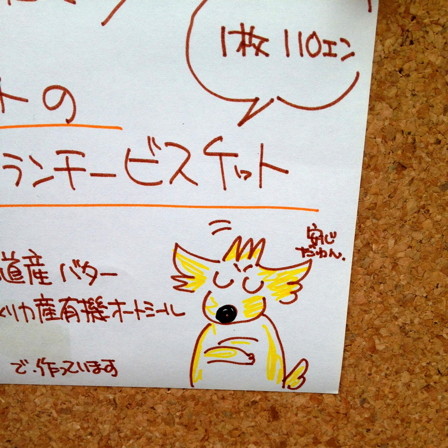 1枚 110エン
トの
ランチービスケット
安心
だわん。
道産バター
メリカ産有機オートミール
で作っています